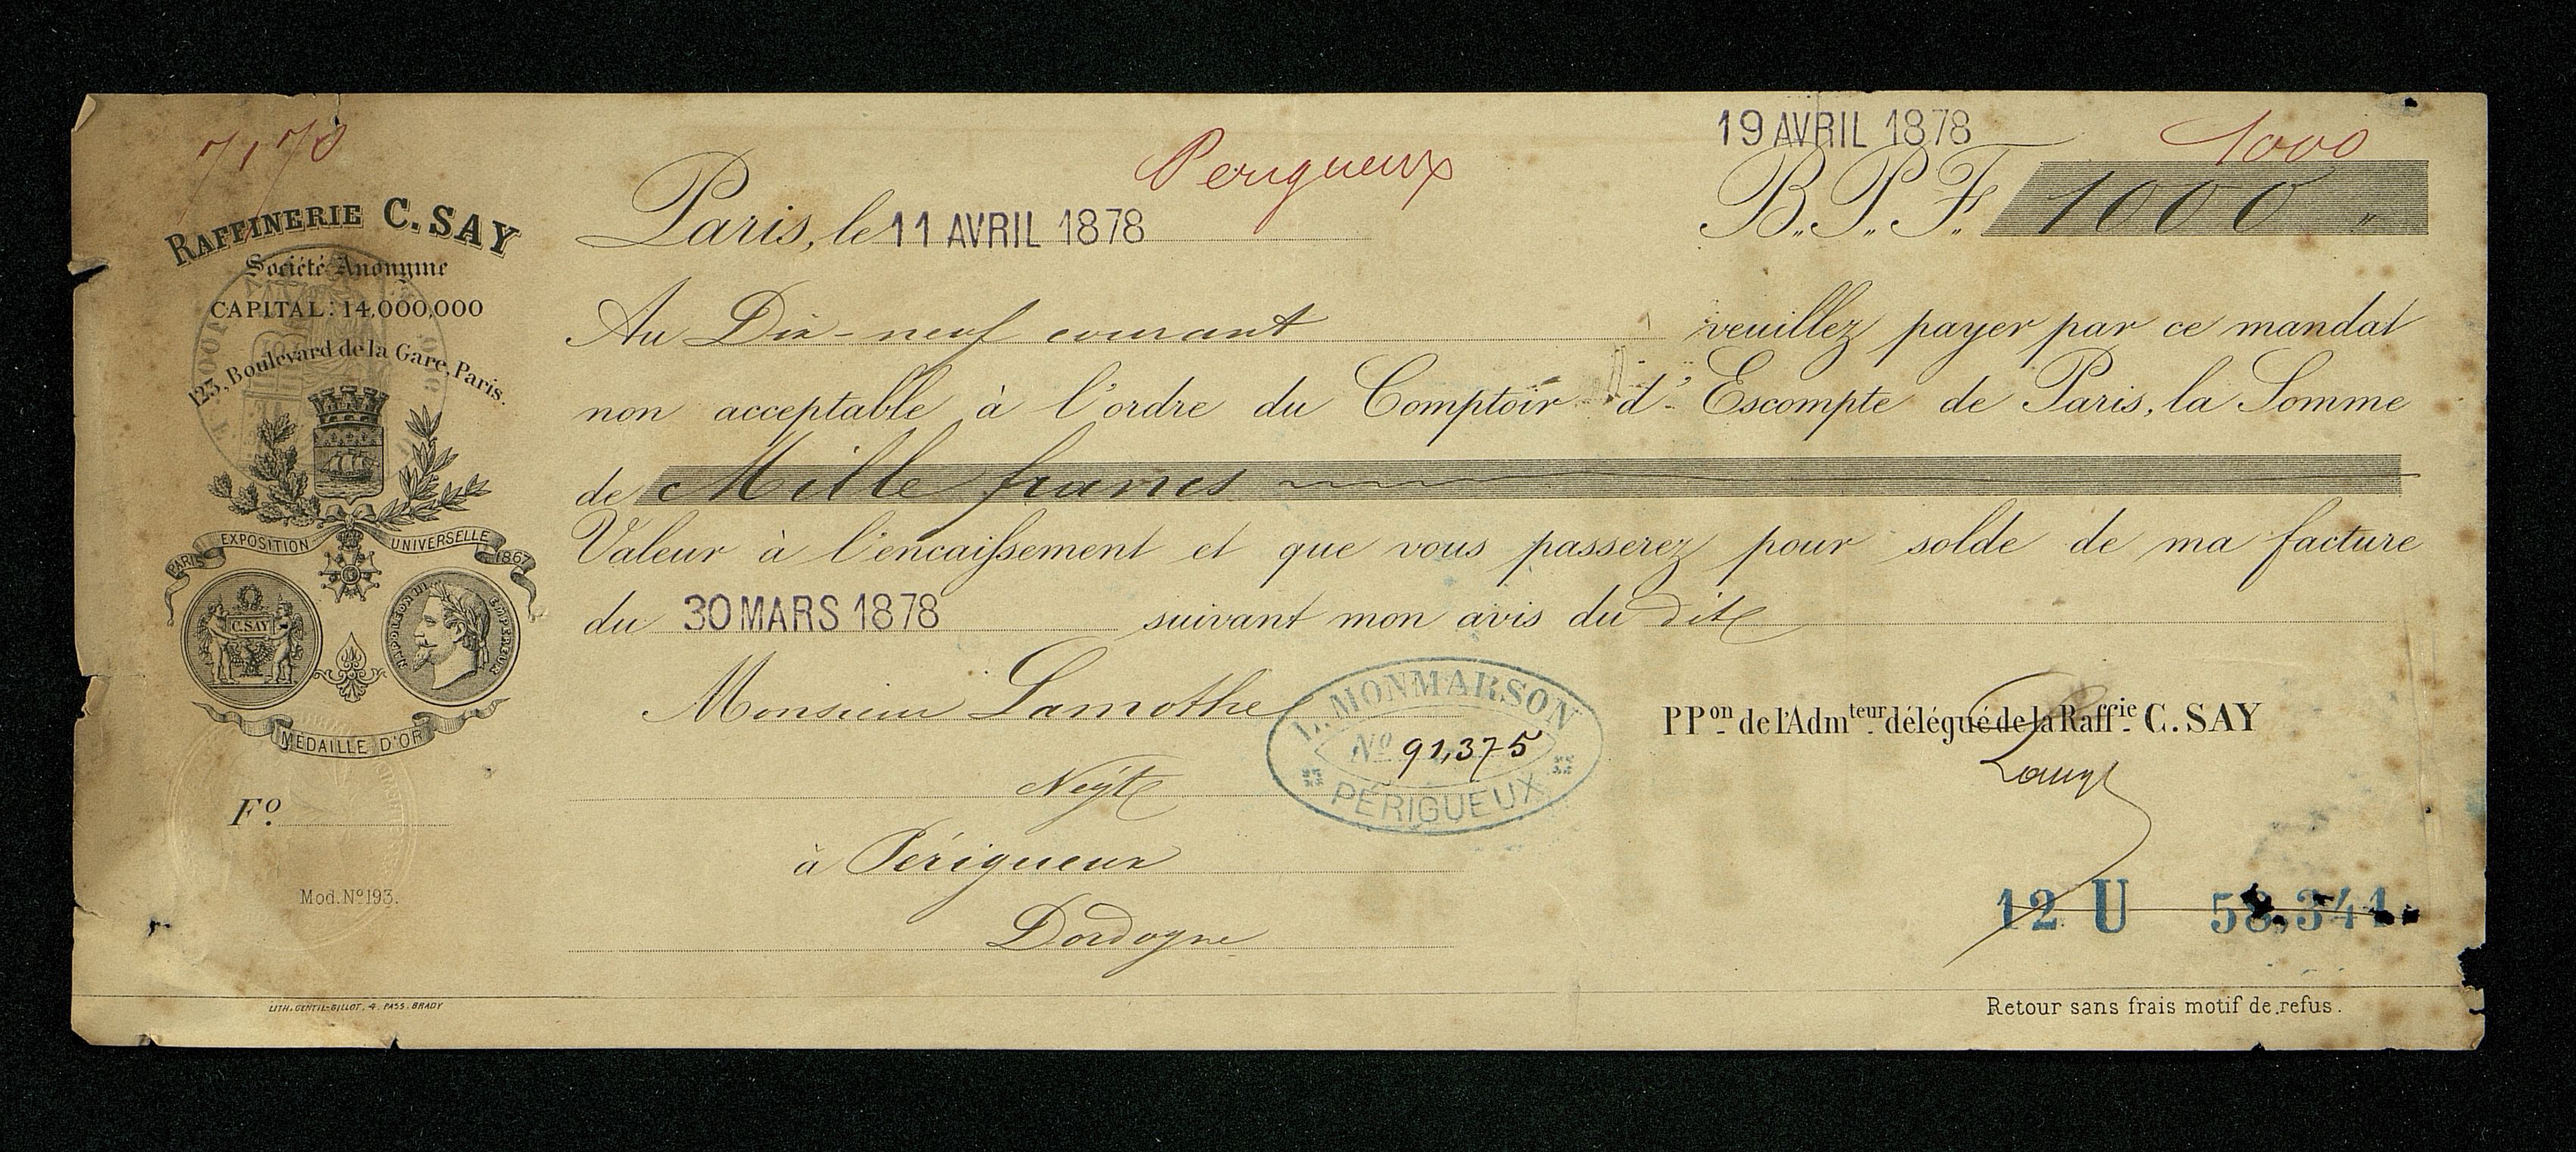 7170
RAFFINERIE C. SAY
Société Anonyme
CAPITAL: 14,000,000
123, Boulevard de la Gare, Paris.
PARIS EXPOSITION UNIVERSELLE 1867
C. SAY
NAPOLEON III EMPEREUR
MÉDAILLE D'OR
Fº
Mod. Nº 193.
LITH. GENTIL-GILLOT, 4. PASS. BRADY
19 AVRIL 1878
Perigueux
1000
Paris, le 11 AVRIL 1878
B. P. F. 1000 "
Au Dix-neuf courant veuillez payer par ce mandat
non acceptable à l'ordre du Comptoir d'Escompte de Paris, la Somme
de Mille francs
Valeur à l'encaissement et que vous passerez pour solde de ma facture
du 30 MARS 1878 suivant mon avis du dit
Monsieur Lamothe
Négt
à Périgueux
Dordogne
L. MONMARSON
Nº 91,375
PÉRIGUEUX
PPon de l'Admteur délégué de la Raffie C. SAY
12 U 58,341
Retour sans frais motif de refus.